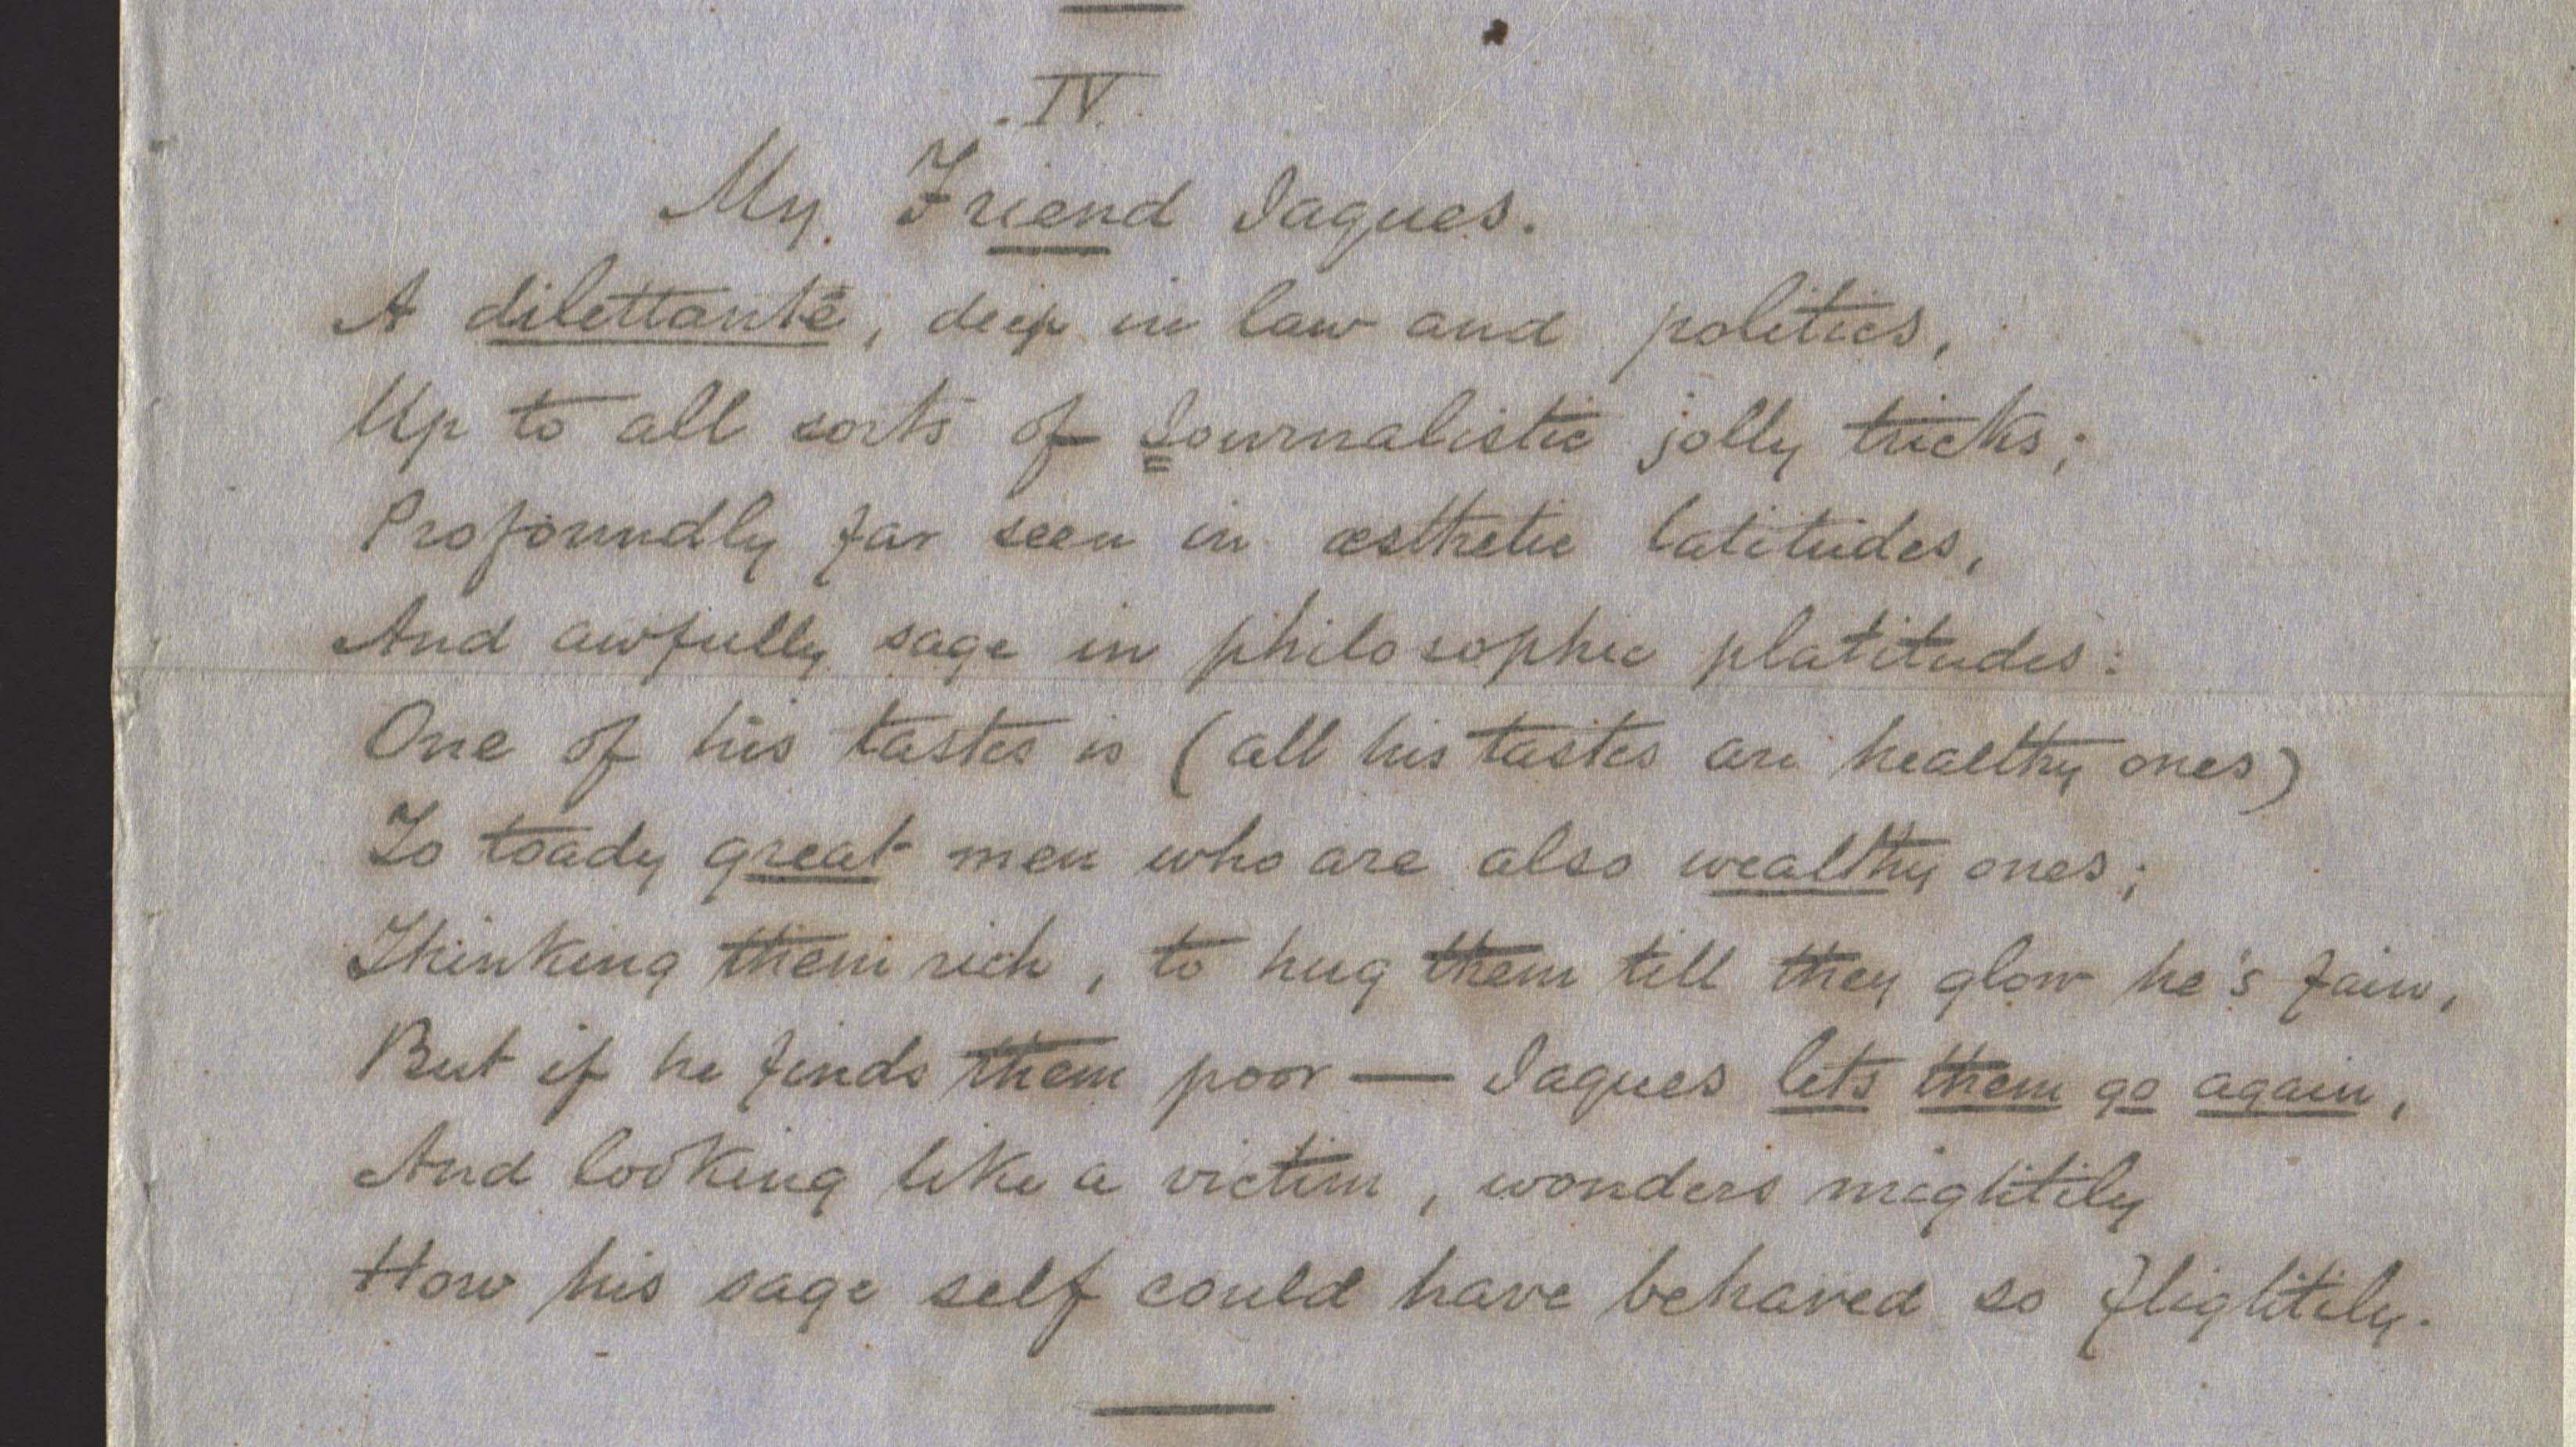 .IV.
My Friend Jaques.
A dilettanté, deep in law and politics,
Up to all sorts of Journalistic jolly tricks;
Profoundly far seen in æsthetic latitudes,
And awfully sage in philosophic platitudes:
One of his tastes is (all his tastes are healthy ones)
To toady great men who are also wealthy ones;
Thinking them rich, to hug them till they glow he's fain,
But if he finds them poor — Jaques lets them go again,
And looking like a victim, wonders mightily
How his sage self could have behaved so flightily.